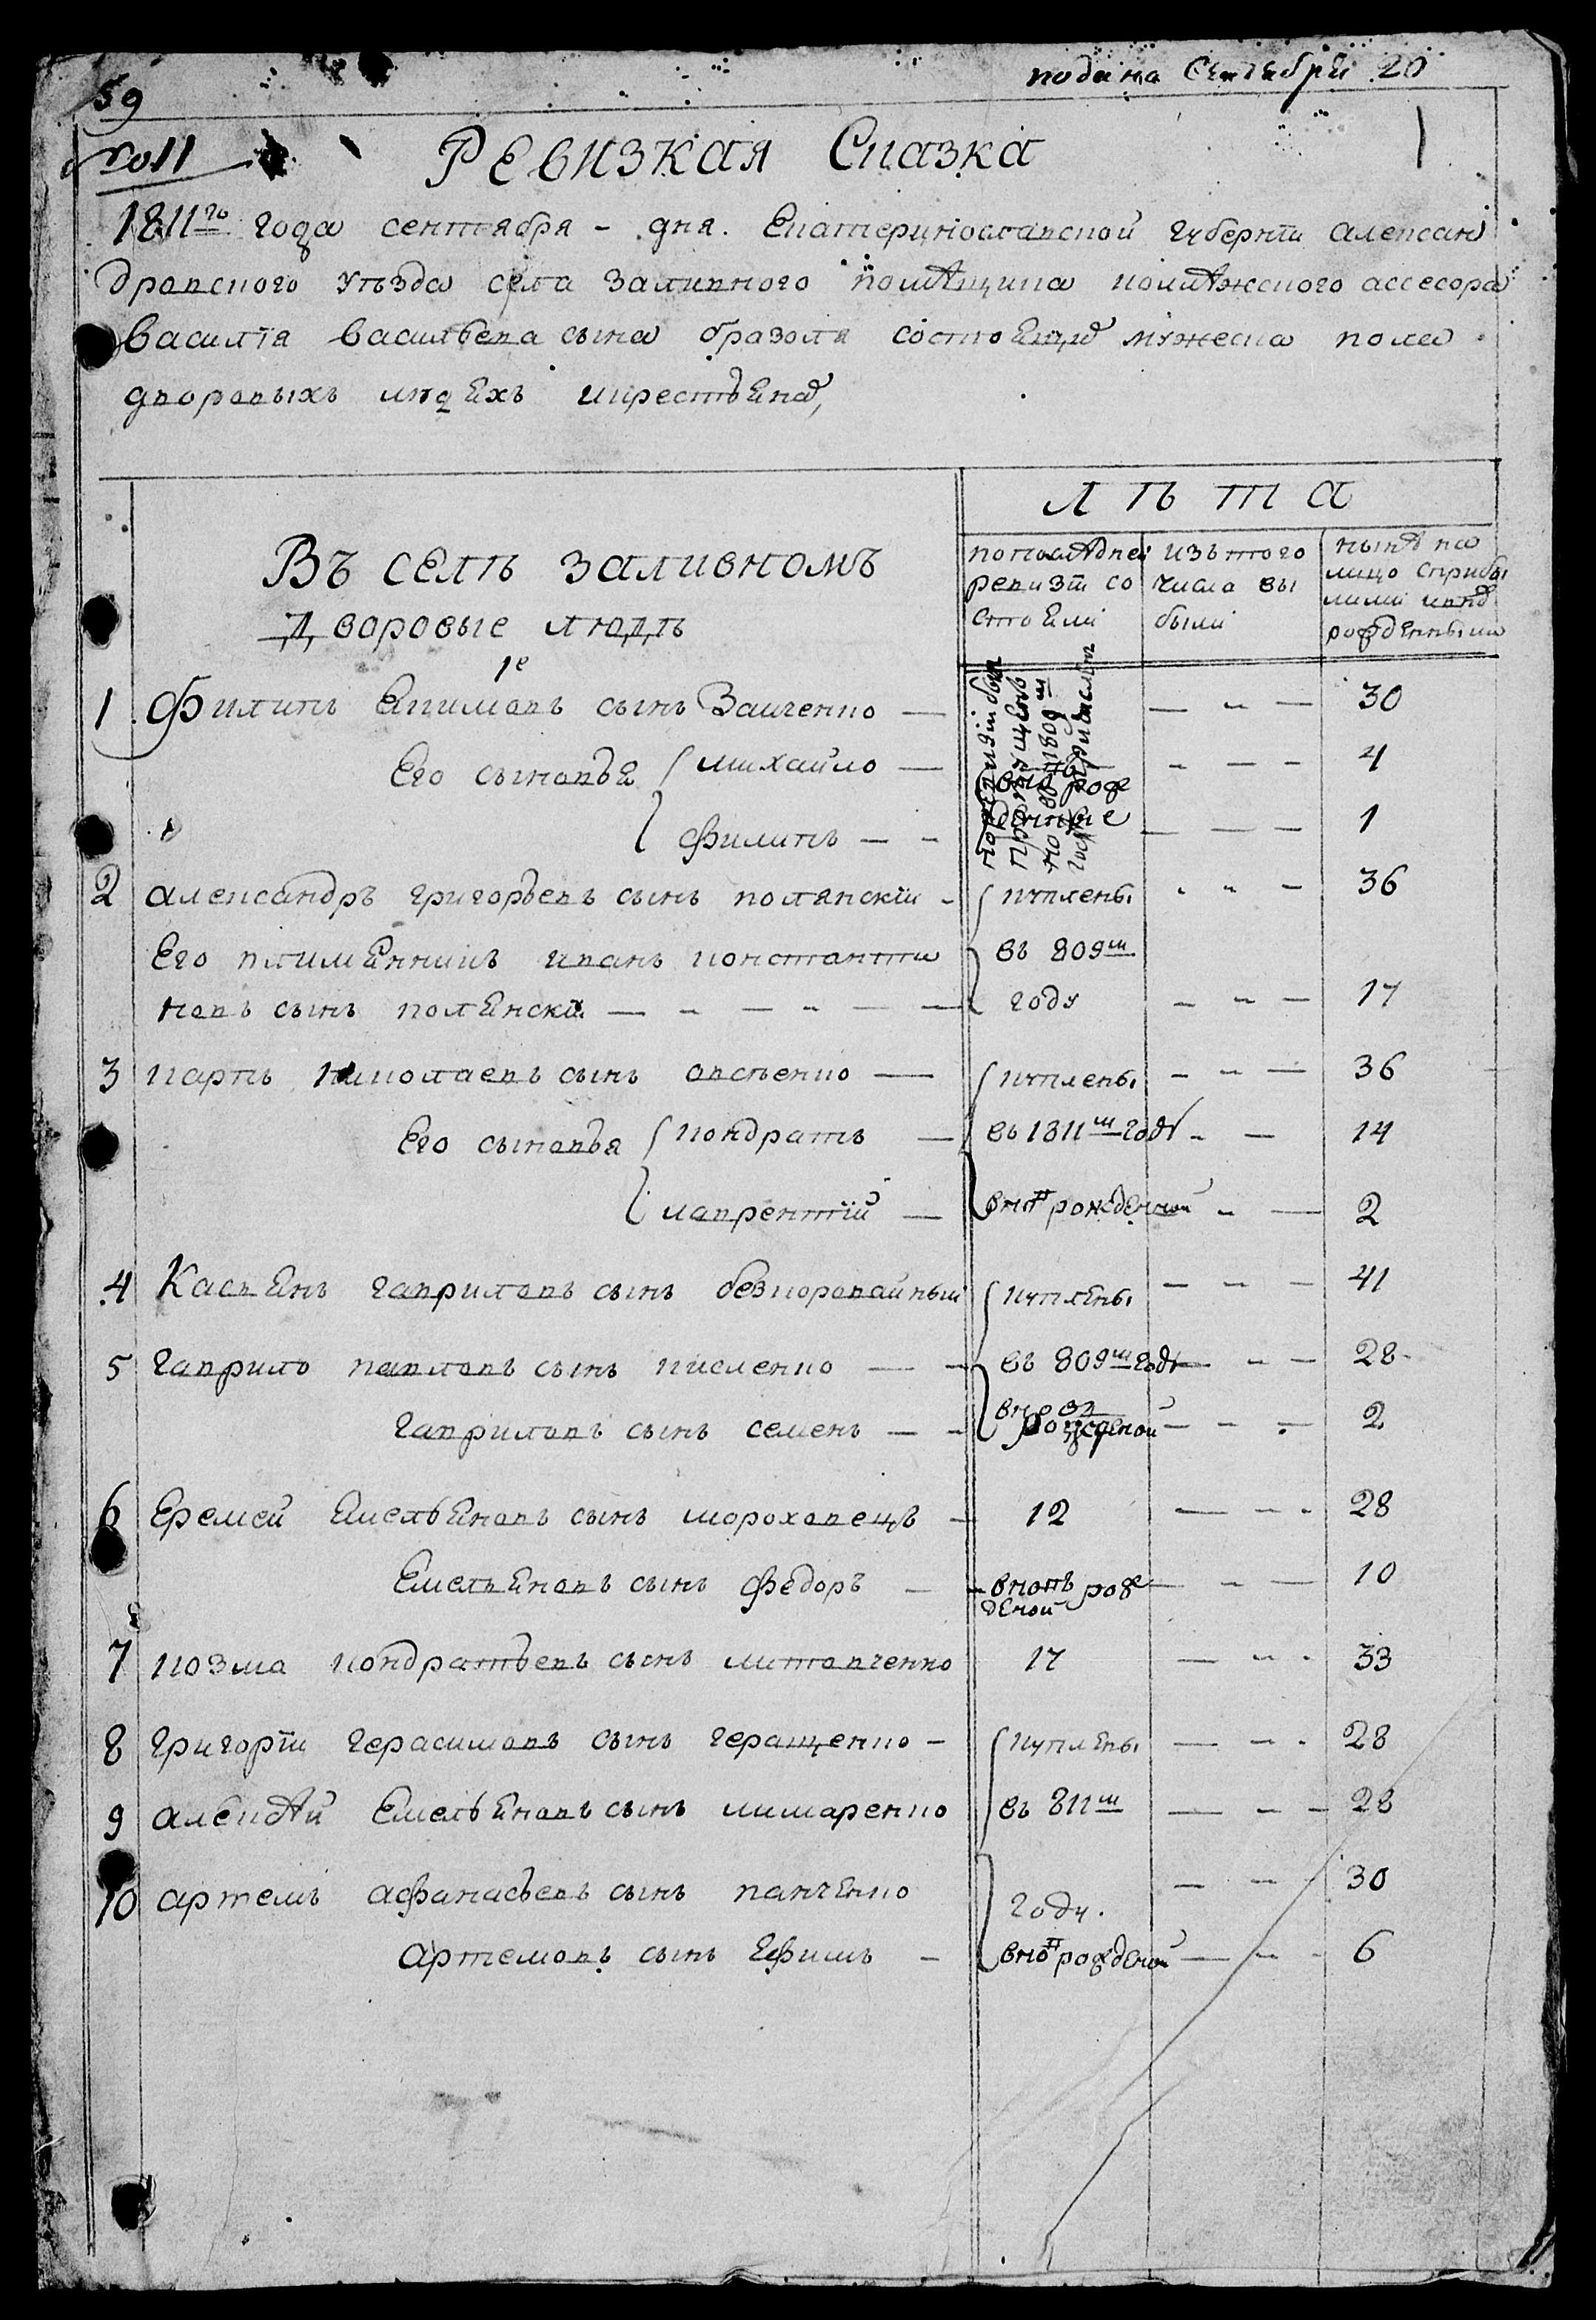 подана Сентабря 20
59
№ 11
1
Ревизкая Сказка
1811го года сентября - дня. Екатеринославской губерніи Алексан
дровского уѣзда села Заливного помѣщика колѣжского ассесора
Василія Васильева сына Бразоля состоящих мужеска пола
дворовыхъ людехъ и крестьянах,
Въ селѣ Заливномъ
Дворовые людѣ
Лѣта
по последней
ревизіи со
стояли
изъ того
числа вы
были
ныне на
лицо с прибы
лими и внов
рожденными
1е
1 Филипъ Екимовъ сынъ Заиченко — — 30
Его сыновья Михайло — вновь рож — 4
Филипъ — - денные — 1
по ревизіи был
пропущенъ
но в 1809м
году причислен
2 Александръ Григорьевъ сынъ Полянскіи - куплены - 36
Его плимянникъ Иванъ Константи въ 809м
новъ сынъ Полянскіи — году — 17
3 Карпъ Николаевъ сынъ Овсѣенко — куплены — 36
Его сыновья Кондратъ — въ 1811м году - 14
Лаврентій — внов рожденной - 2
4 Касьянъ Гавриловъ сынъ Безкоровайный куплены — 41
5 Гаврило Павловъ сынъ Кисленко — въ 809м году — 28
Гавриловъ сынъ Семенъ — вновь рожденой — 2
6 Еремей Емельяновъ сынъ Мороховецъ - 12 — 28
Емельяновъ сынъ Федоръ — вновь рож — 10
деной
7 Козма Кондратьевъ сынъ Литовченко 17 — 33
8 Григоріи Герасимовъ сынъ Геращенко - куплены — 28
9 Алексѣй Емельяновъ сынъ Лимаренко въ 811м — 28
10 Артемъ Афанасьевъ сынъ Панченко году. — 30
Артемовъ сынъ Ефимъ - внов рожденой — 6